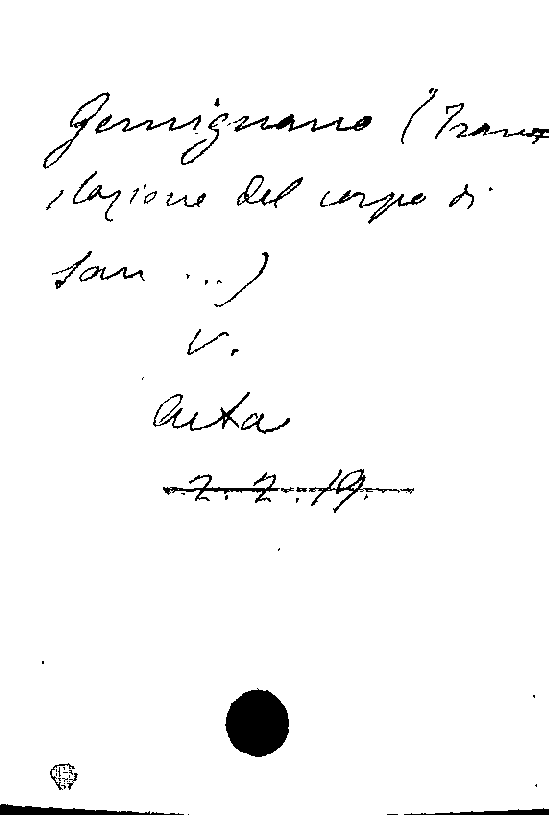 Gemignano ("Trans-
slazione del corpo di
san ...)
V.
Acta
Z. Z. 19.